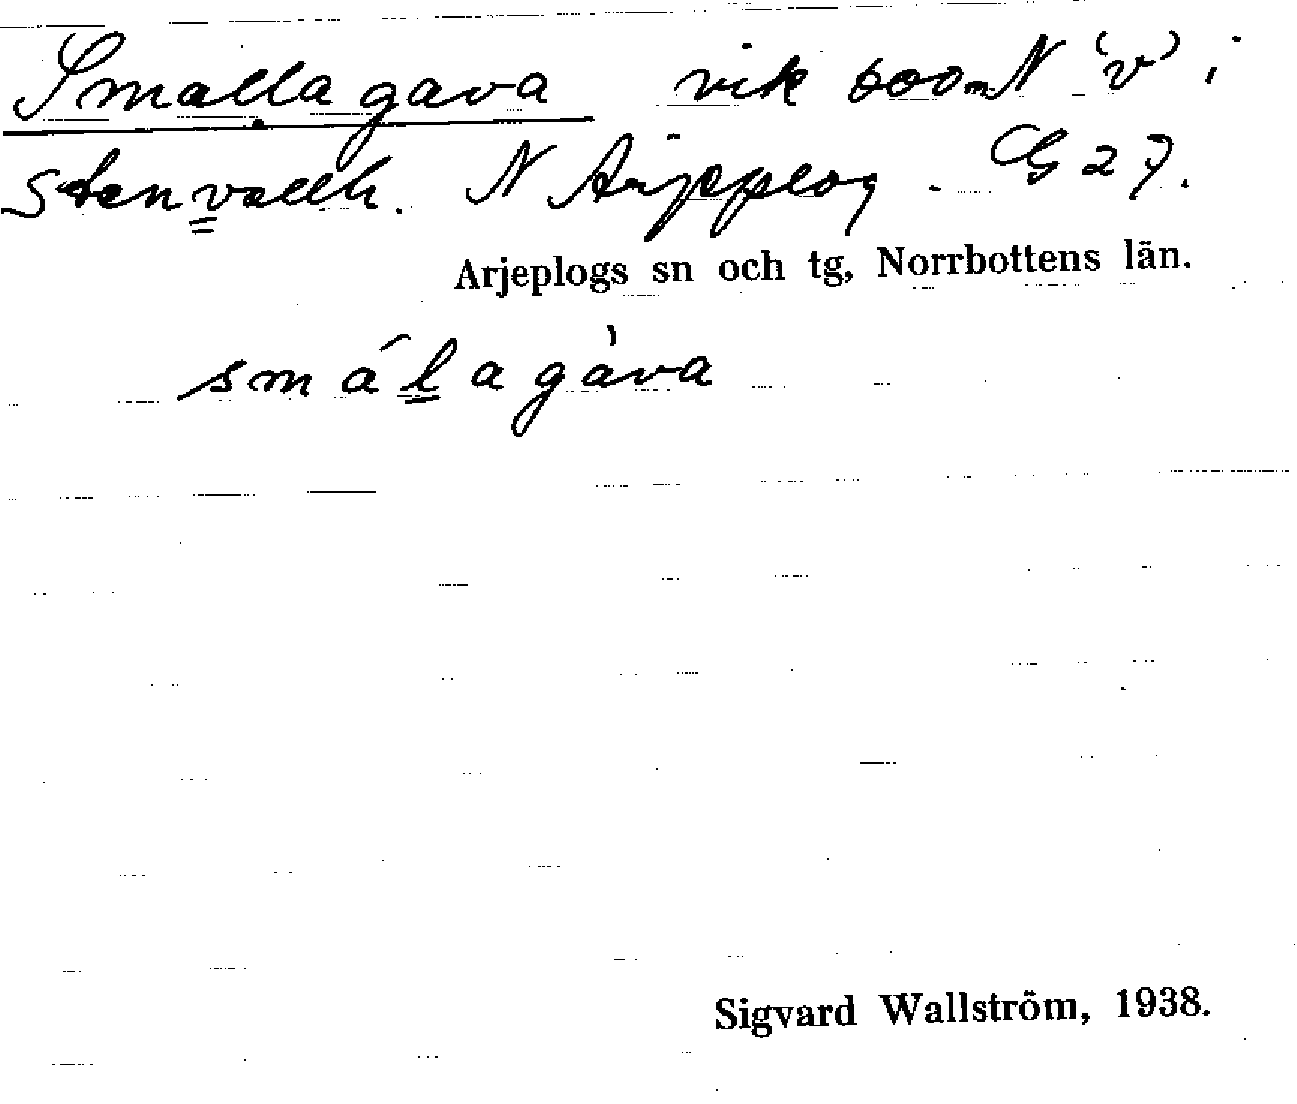 Smalla gava vik 600 m N 'v' i
Stenvallh. N Arjepplog. G 27.
Arjeplogs sn och tg, Norrbottens län.
smálagàva
Sigvard Wallström, 1938.